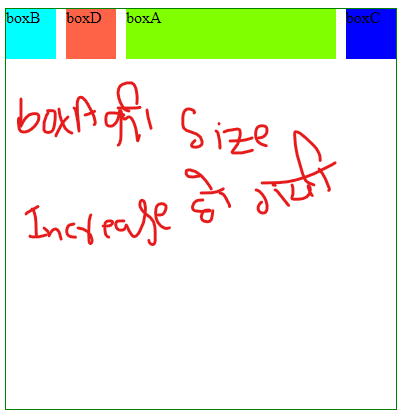 boxB boxD boxA boxC
boxA की Size
Increase हो गयी